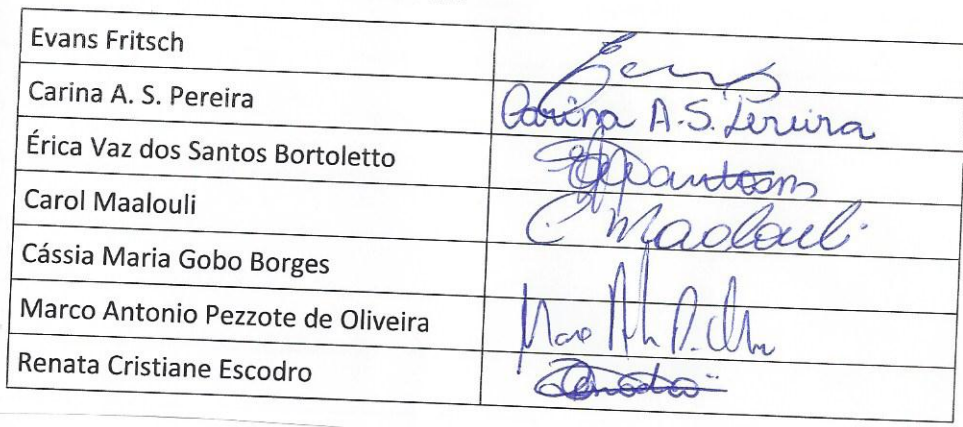 Evans Fritsch
Carina A. S. Pereira Carina A.S. Pereira
Érica Vaz dos Santos Bortoletto
Carol Maalouli C. Maalouli
Cássia Maria Gobo Borges
Marco Antonio Pezzote de Oliveira
Renata Cristiane Escodro